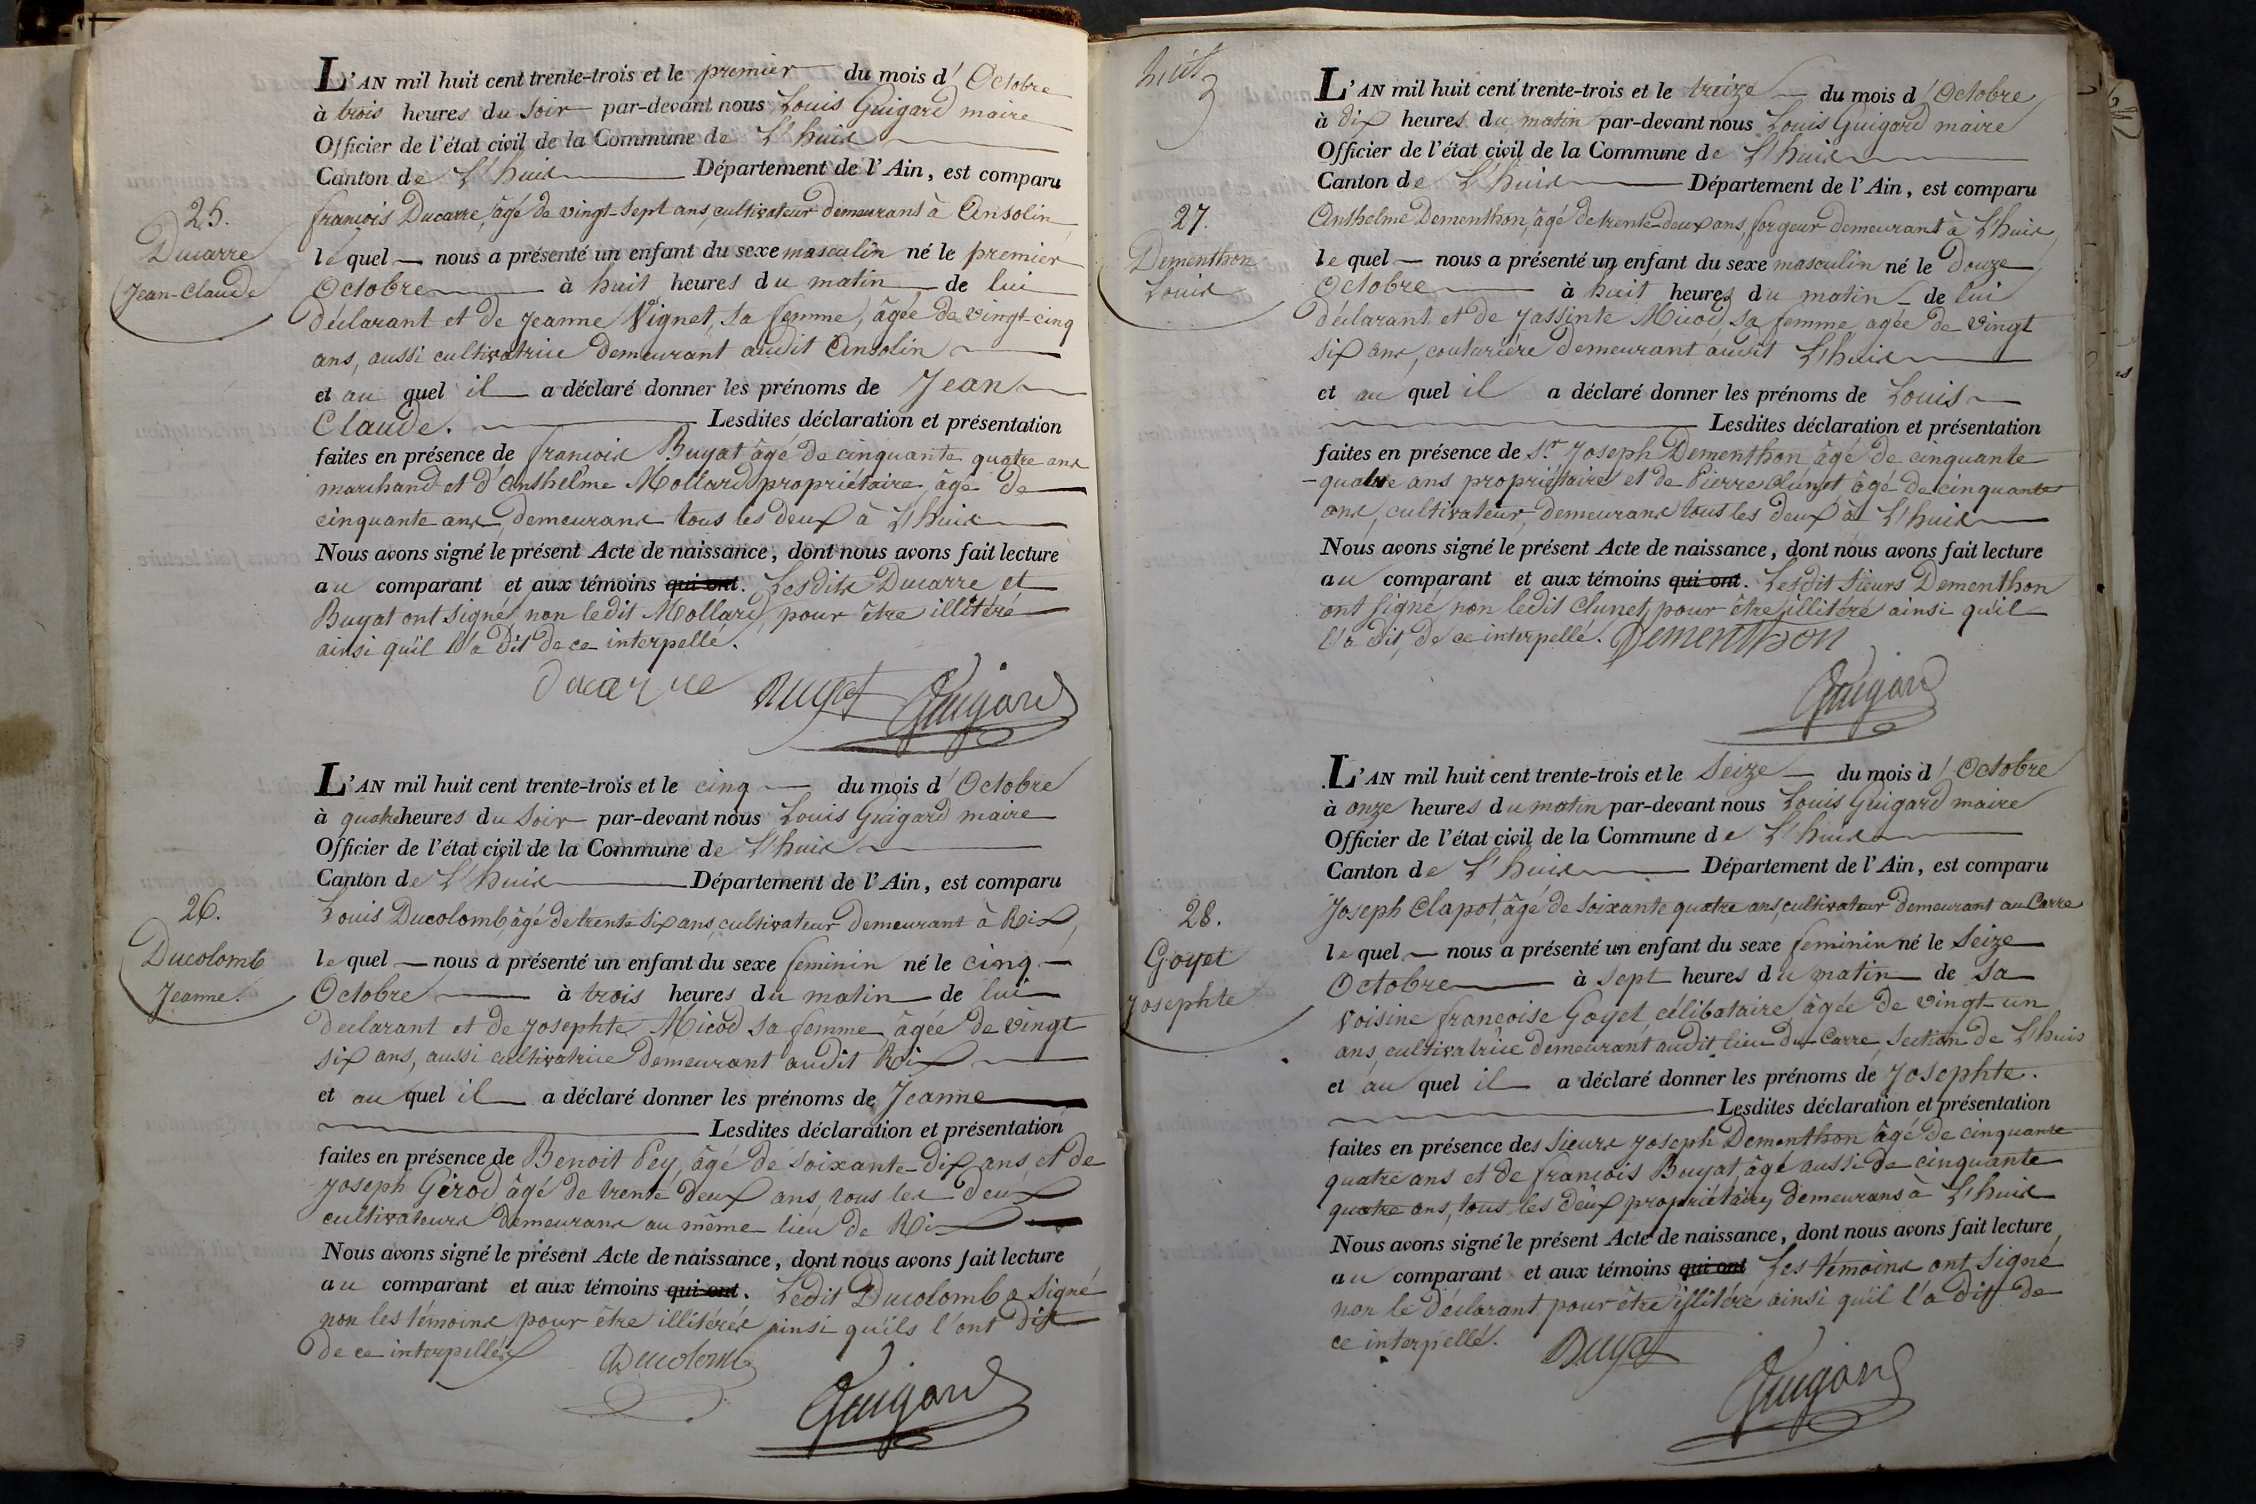 L'AN mil huit cent trente-trois et le premier du mois d'Octobre
à trois heures du soir par-devant nous Louis Guigard maire
Officier de l'état civil de la Commune de L'huis
Canton de L'huis Département de l'Ain, est comparu
25.
Ducarre
Jean-Claude
francois Ducarre, âgé de vingt-sept ans, cultivateur demeurans à Ansolin
lequel nous a présenté un enfant du sexe masculin né le premier
Octobre à huit heures du matin de lui
déclarant et de Jeanne Vignet, sa femme, âgée de vingt-cinq
ans, aussi cultivatrice demeurant audit Ansolin
et au quel il a déclaré donner les prénoms de Jean
Claude. Lesdites déclaration et présentation
faites en présence de francois Buyat âgé de cinquante quatre ans
marchand et d'Anthelme Mollard propriétaire, âgé de
cinquante ans, demeurans tous les deux à L'huis
Nous avons signé le présent Acte de naissance, dont nous avons fait lecture
au comparant et aux témoins qui ont. Lesdits Ducarre et
Buyat ont signé, non ledit Mollard, pour être illitéré
ainsi qu'il l'a dit de ce interpellé.
Ducarre Buyat Guigard
L'AN mil huit cent trente-trois et le cinq du mois d'Octobre
à quatre heures du soir par-devant nous Louis Guigard maire
Officier de l'état civil de la Commune de L'huis
Canton de L'huis Département de l'Ain, est comparu
26.
Ducolomb
Jeanne.
Louis Ducolomb, âgé de trente six ans, cultivateur demeurant à Rix,
lequel nous a présenté un enfant du sexe feminin né le cinq
Octobre à trois heures du matin de lui
declarant et de Josephte Micod sa femme, âgée de vingt
six ans, aussi cultivatrice demeurant audit Rix
et au quel il a déclaré donner les prénoms de Jeanne
Lesdites déclaration et présentation
faites en présence de Benoit Pey, âgé de soixante-dix ans, et de
Joseph Gérod âgé de trente deux ans, tous les deux
cultivateurs demeurans au même lieu de Rix
Nous avons signé le présent Acte de naissance, dont nous avons fait lecture
au comparant et aux témoins qui ont. Ledit Ducolomb a signé
non les témoins pour être illitérés ainsi qu'ils l'ont dit
de ce interpellés
Ducolomb
Guigard
huit
L'AN mil huit cent trente-trois et le treize du mois d'Octobre
à dix heures du matin par-devant nous Louis Guigard maire
Officier de l'état civil de la Commune de L'huis
Canton de L'huis Département de l'Ain, est comparu
27.
Dementhon
Louis
Anthelme Dementhon, âgé de trente-deux ans, forgeur demeurant à L'huis,
lequel nous a présenté un enfant du sexe masculin né le douze
Octobre à huit heures du matin de lui
déclarant et de Jassinte Micod, sa femme agée de vingt
six ans, couturiére demeurant audit L'huis
et au quel il a déclaré donner les prénoms de Louis
Lesdites déclaration et présentation
faites en présence de Sr. Joseph Dementhon âgé de cinquante
-quatre ans propriétaire et de Pierre Clunet âgé de cinquante
ans, cultivateur, demeurans tous les deux à L'huis
Nous avons signé le présent Acte de naissance, dont nous avons fait lecture
au comparant et aux témoins qui ont. Lesdit sieurs Dementhon
ont signé non ledit Clunet, pour être illitéré ainsi qu'il
l'a dit, de ce interpellé. Dementhon
Guigard
L'AN mil huit cent trente-trois et le Seize du mois d'Octobre
à onze heures du matin par-devant nous Louis Guigard maire
Officier de l'état civil de la Commune de L'huis
Canton de L'huis Département de l'Ain, est comparu
28.
Goyet
Josephte
Joseph Clapot, âgé de soixante quatre ans, cultivateur demeurant au Carre
lequel nous a présenté un enfant du sexe feminin né le Seize
Octobre à sept heures du matin de sa
voisine françoise Goyet célibataire âgée de vingt-un
ans, cultivatrice demeurant audit lieu du Carre, section de L'huis
et au quel il a déclaré donner les prénoms de Josephte.
Lesdites déclaration et présentation
faites en présence des sieurs Joseph Dementhon âgé de cinquante
quatre ans et de francois Buyat, âgé aussi de cinquante
quatre ans, tous les deux propriétaires demeurans à L'huis
Nous avons signé le présent Acte de naissance, dont nous avons fait lecture
au comparant et aux témoins qui ont Les témoins ont signé
non le déclarant pour être illitéré ainsi qu'il l'a dit de
ce interpellé. Buyat
Guigard